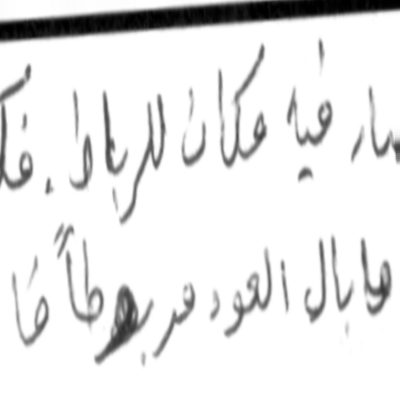 صار فيه مكان للرباط. فك
ما بال العود مربوطاً ها